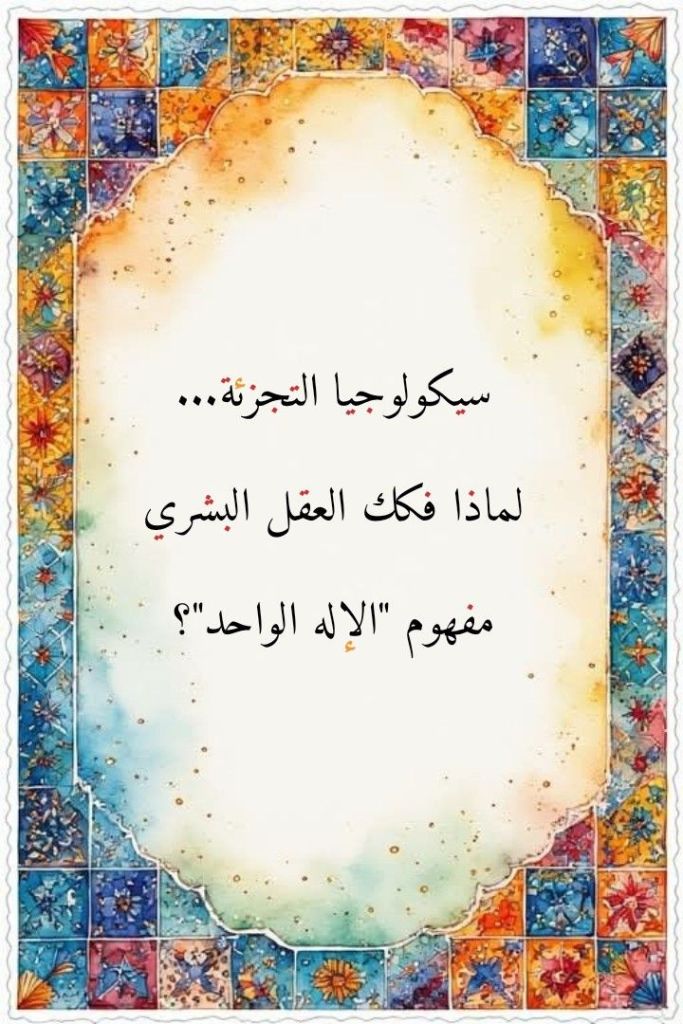 سيكولوجيا التجزئة...
لماذا فكك العقل البشري
مفهوم "الإله الواحد"؟